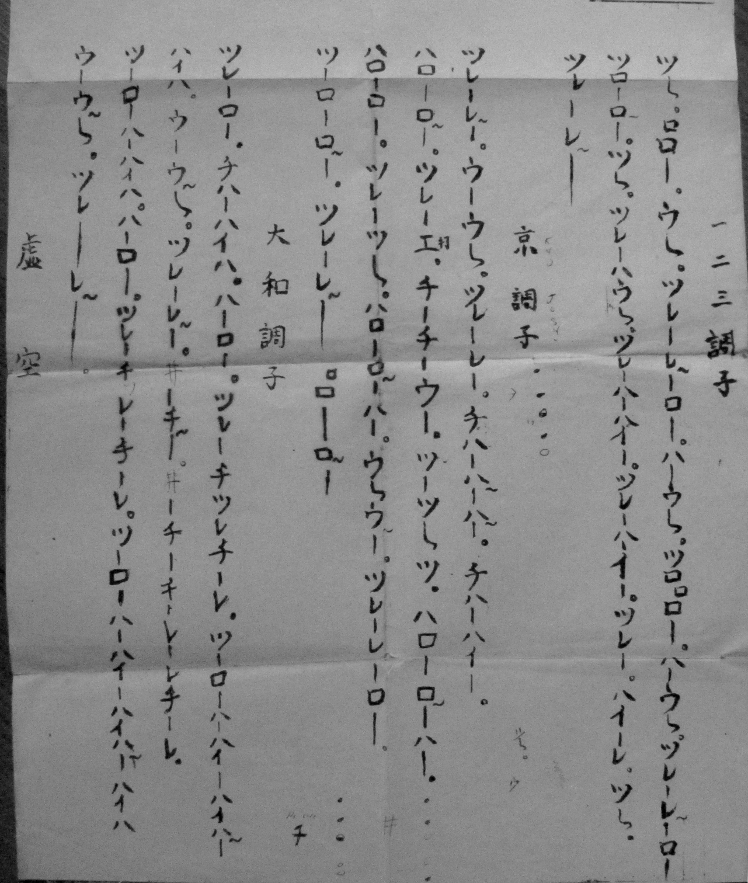 一二三調子
ツ㇄。ロロー。ウ㇄。ツレーレ゙ーロー。ハーウ㇄。ツロロロー。ハーウ㇄。ツレーレ゙ーロー
ツローロー。ツ㇄。ツレーハウ㇄。ツレーハーハイー。ツレーハーイー。ツレー。ハイーレ。ツ㇄。
ツレーレ゙ー
京調子
ツレーレ゙ー。ウーウ㇄。ツレーレー。チハーバーバー。チハーハイー。
ハローロ゙ー。ツレーエ。チーチーウー。ツーツ㇄ツ。ハローロ゙ーハー。
ハローロー。ツレーツ㇄。ハローロ゙ーハー。ウ㇄ウ゛ー。ツレーレーロー。
ツーローロ゙ー。ツレーレ゙ー。ローロ゙ー
大和調子
ツレーロー。チハーハイハ。ハーロー。ツレーチツレチーレ。ツーローハーハイーハイバー
ハイハ。ウーウ゛㇄。ツレーレ゙ー。キーチ゛ー。キーチーチーレーレチーレ。
ツーローハーハイハ。ハーロー。ツレーチレーチーレ。ツーローハーハイーハイバーハイハ
ウーウ゛㇄。ツレーレ゙ー。
チ
虚空